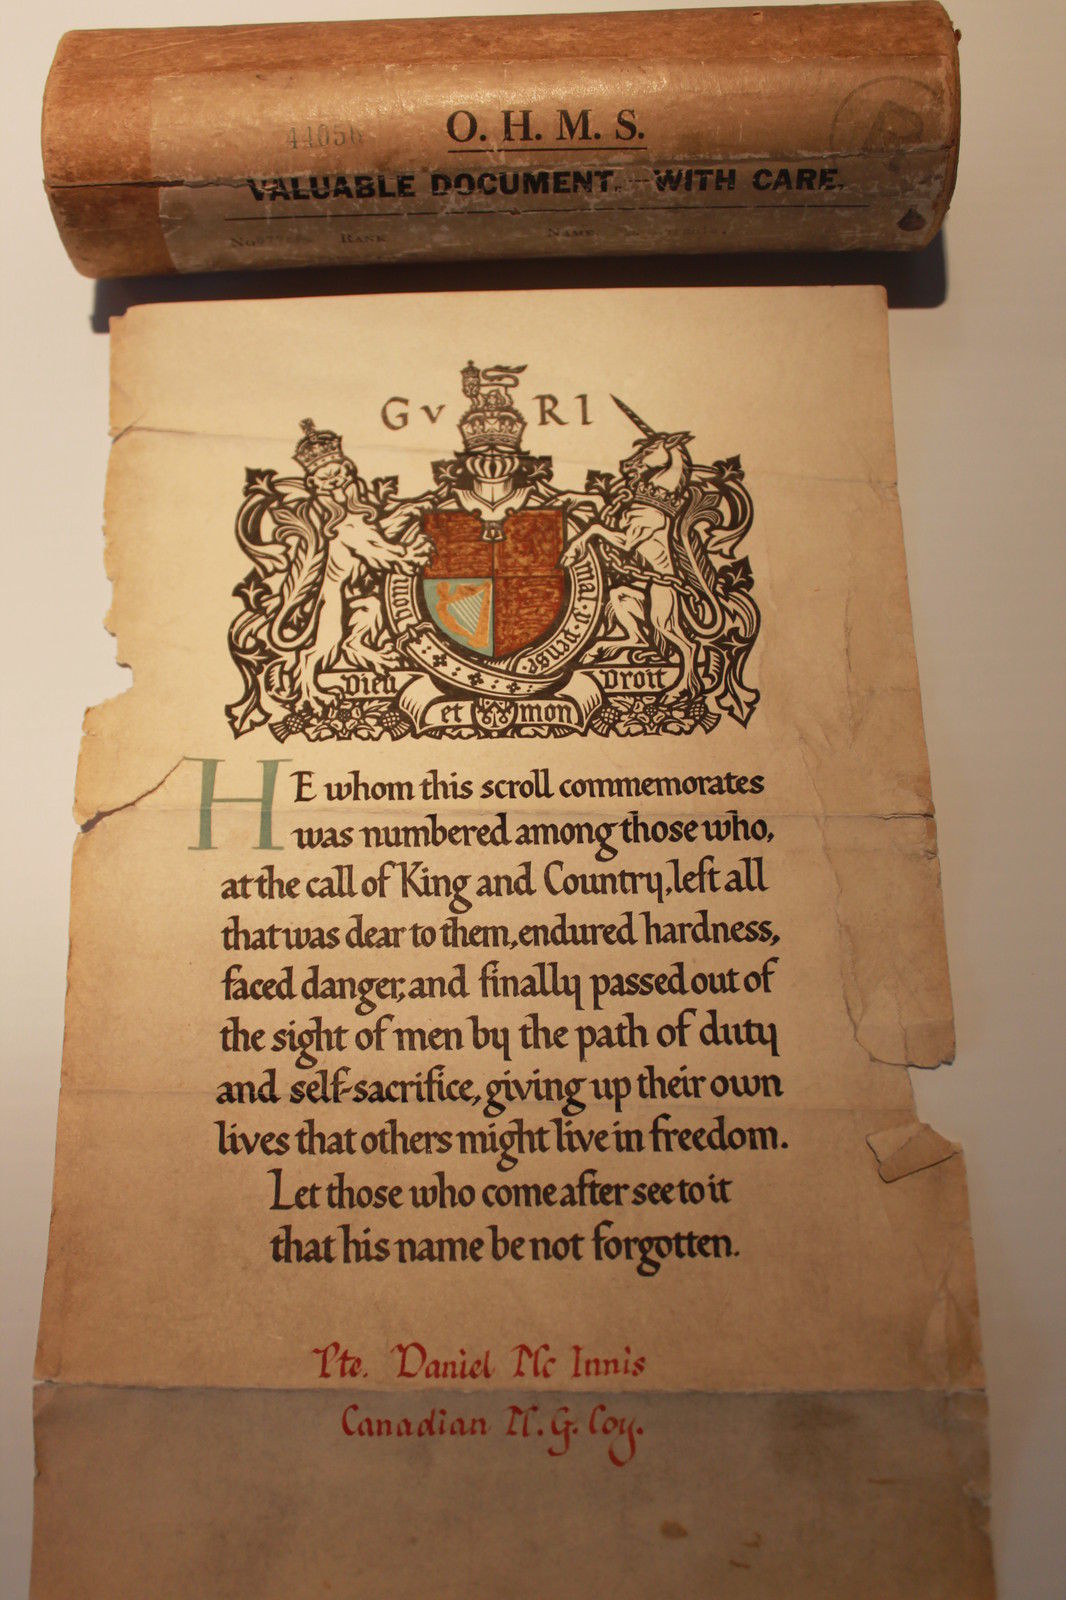 44056
O. H. M. S.
VALUABLE DOCUMENT.—WITH CARE.
No. RANK NAME
G V R I
honi mal y pense
Dieu et mon Droit
HE whom this scroll commemorates
was numbered among those who,
at the call of King and Country, left all
that was dear to them, endured hardness,
faced danger, and finally passed out of
the sight of men by the path of duty
and self-sacrifice, giving up their own
lives that others might live in freedom.
Let those who come after see to it
that his name be not forgotten.
Pte. Daniel Mc Innis
Canadian M.G. Coy.